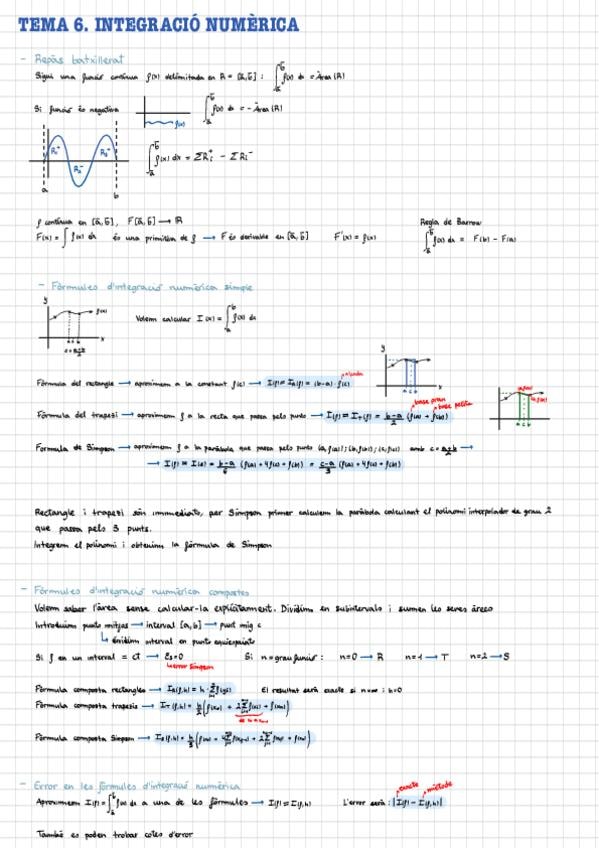 TEMA 6. INTEGRACIÓ NUMÈRICA
- Repàs batxillerat
Sigui una funció contínua f(x) delimitada en R = [a,b] : ∫ f(x) dx = Àrea (R)
Si funció és negativa
f(x)
∫ f(x) dx = - Àrea (R)
R₁⁺ R₂⁻ R₃⁺
a b
∫ f(x) dx = ΣRi⁺ - ΣRi⁻
f contínua en [a,b], F[a,b] → R
F(x) = ∫ f(x) dx és una primitiva de f → F és derivable en [a,b] F'(x) = f(x)
Regla de Barrow
∫ f(x) dx = F(b) - F(a)
- Fórmules d'integració numèrica simple
y f(x) x
a c b
c = a+b/2
Volem calcular I(x) = ∫ f(x) dx
Fórmula del rectangle → aproximem a la constant f(c) → I(f) ≈ I_R(f) = (b-a) · f(c)
Fórmula del trapezi → aproximem f a la recta que passa pels punts → I(f) ≈ I_T(f) = b-a/2 (f(a) + f(b))
base gran
base petita
Formula de Simpson → aproximem f a la paràbola que passa pels punts (a, f(a)); (b, f(b)); (c, f(c)) amb c = a+b/2 →
→ I(f) ≈ I(s) = b-a/6 (f(a) + 4f(c) + f(b)) = c-a/3 (f(a) + 4f(c) + f(b))
Rectangle i trapezi són immediats, per Simpson primer calculem la paràbola calculant el polinomi interpolador de grau 2
que passa pels 3 punts.
Integrem el polinomi i obtenim la fórmula de Simpson
- Fórmules d'integració numèrica compostes
Volem saber l'àrea sense calcular-la explícitament. Dividim en subintervals i sumem les seves àrees
Introduïm punts mitjos → interval [a,b] → punt mig c
↳ dividim interval en punts equiespaiats
Si f en un interval = ct → Es=0
error Simpson
Si n = grau funció : n=0 → R n=1 → T n=2 → S
Fórmula composta rectangles →
El resultat serà exacte si
Fórmula composta trapezis →
Fórmula composta Simpson →
- Error en les fórmules d'integració numèrica
Aproximem I(f) = ∫ f(x) dx a una de les fórmules → I(f) ≈ I(f,h)
L'error serà : |I(f) - I(f,h)|
exacte
mètode
També es poden trobar cotes d'error